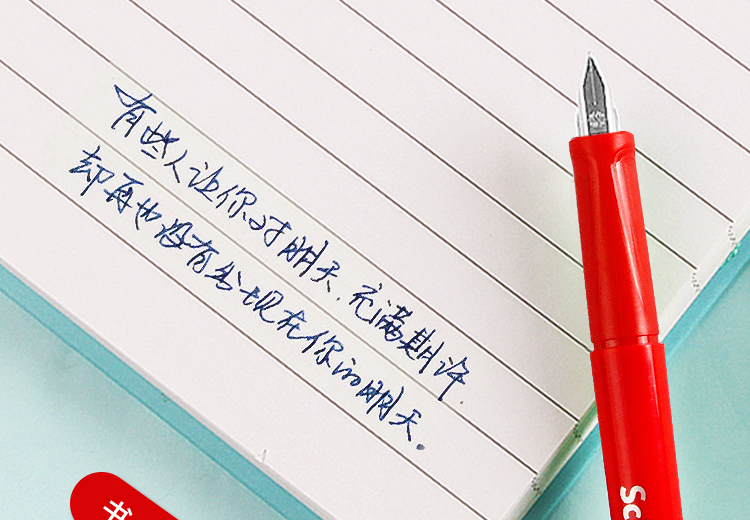 有些人让你对明天.充满期许.
却再也没有出现在你的明天.
Sc
书